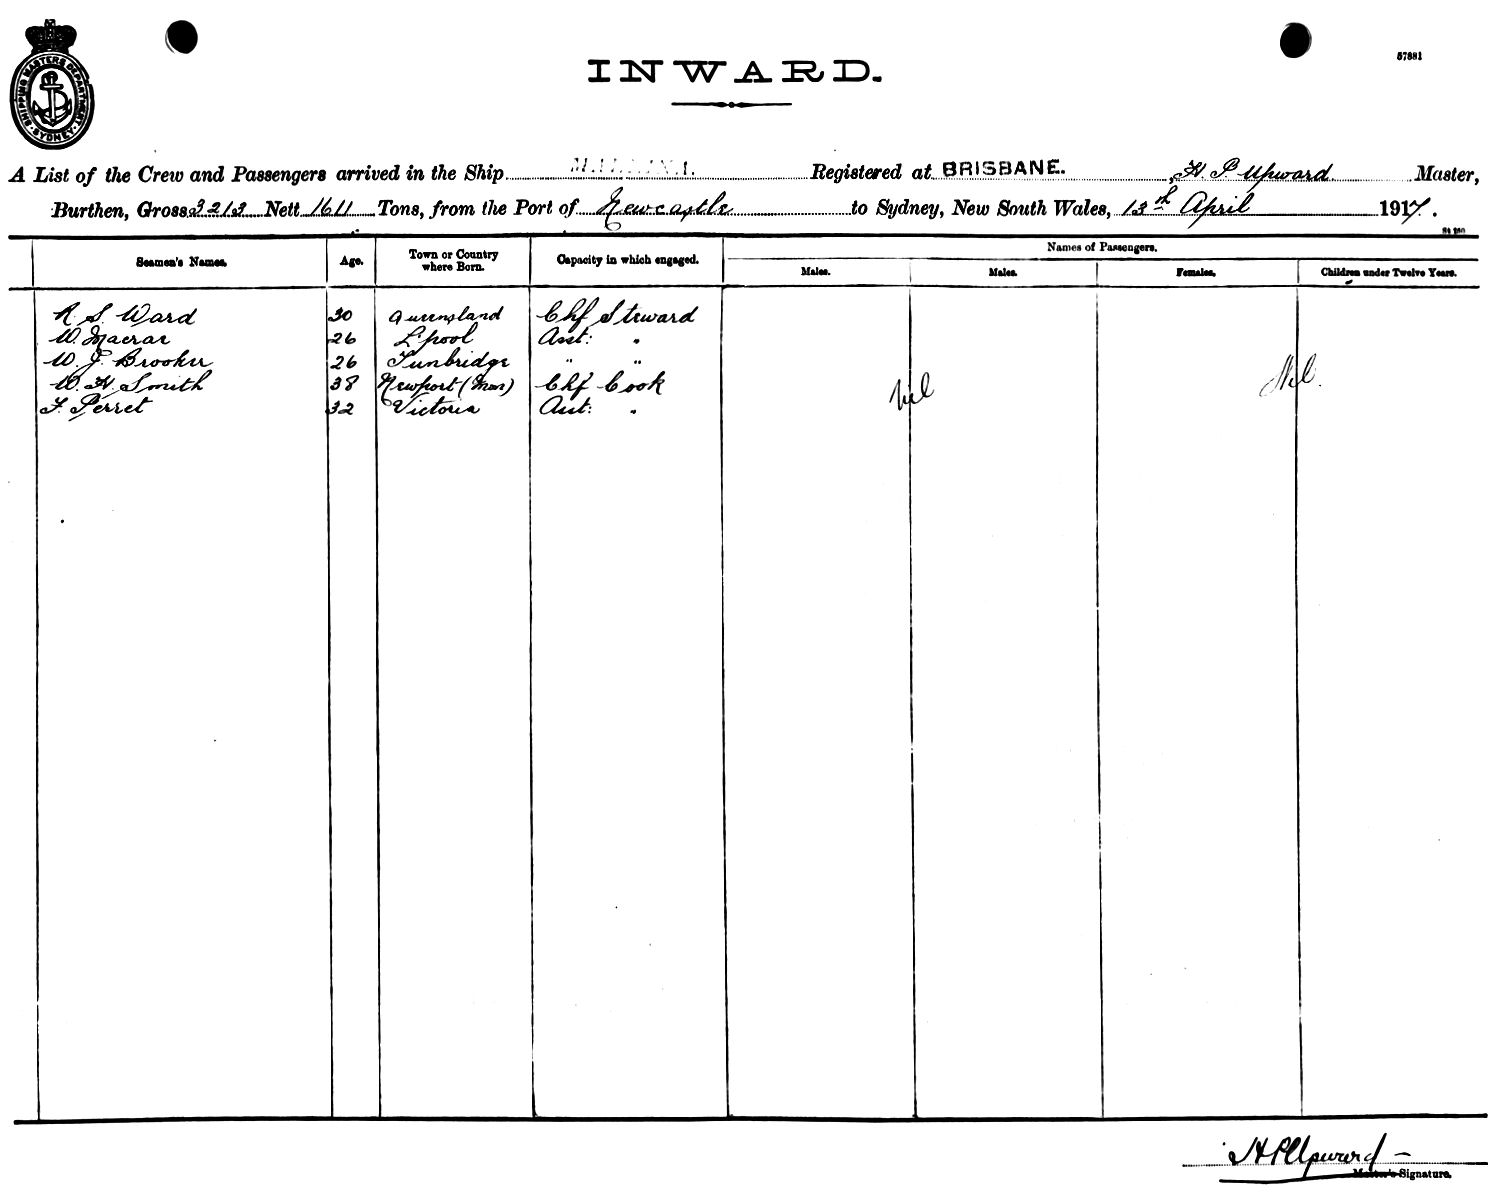 SHIPPING MASTERS DEPARTMENT
SYDNEY
57881
INWARD.
A List of the Crew and Passengers arrived in the Ship Registered at BRISBANE. , H. P. Upward Master,
Burthen, Gross 3213 Nett 1611 Tons, from the Port of Newcastle to Sydney, New South Wales, 13th April 1917.
Seamen's Names. Age. Town or Country where Born. Capacity in which engaged. Names of Passengers.
Males. Males. Females. Children under Twelve Years.
R. S. Ward 30 Queensland Chf Steward
W. Macrae 26 L'pool Asst: "
W. J. Brooker 26 Tunbridge " "
W. H. Smith 38 Newport (Mon) Chf Cook
F. Perret 32 Victoria Asst: "
Nil Nil.
H P Upward
Master's Signature.